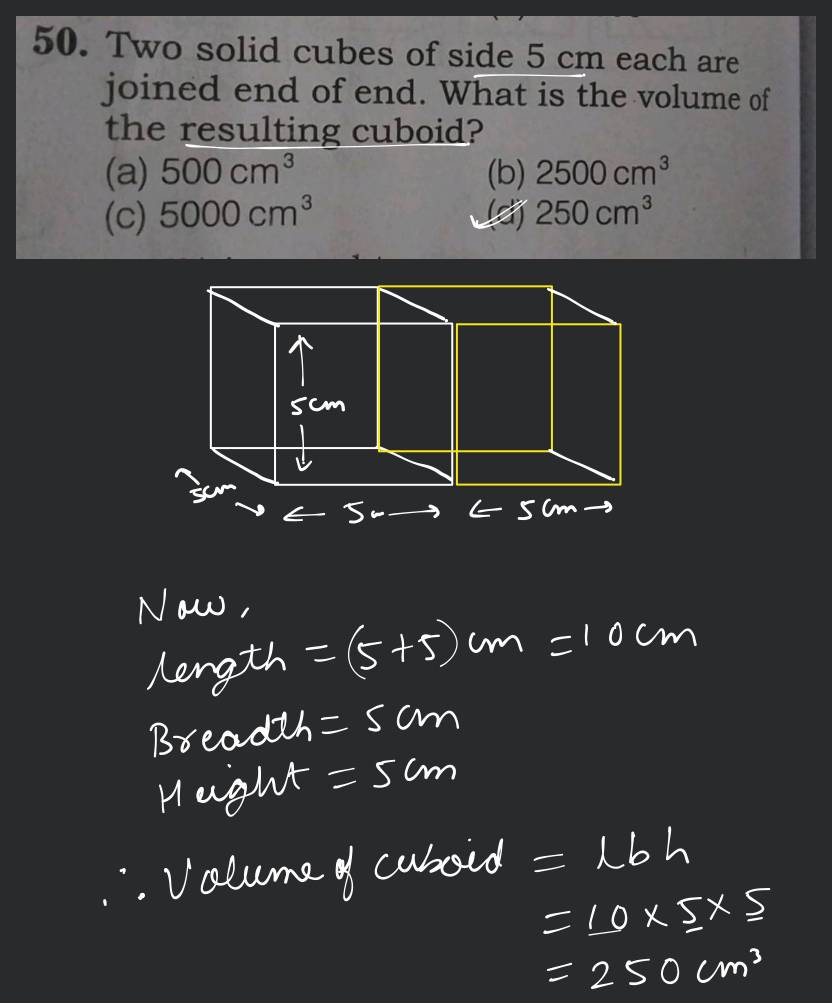 50. Two solid cubes of side 5 cm each are
joined end of end. What is the volume of
the resulting cuboid?
(a) 500 cm³ (b) 2500 cm³
(c) 5000 cm³ (d) 250 cm³
5cm
5cm
5cm
5cm
Now,
length = (5+5) cm = 10cm
Breadth = 5 cm
Height = 5 cm
∴ Volume of cuboid = lbh
= 10 × 5 × 5
= 250 cm³